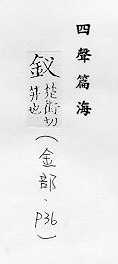 四聲篇海
釵
楚街切
笄也
（金部·P36）